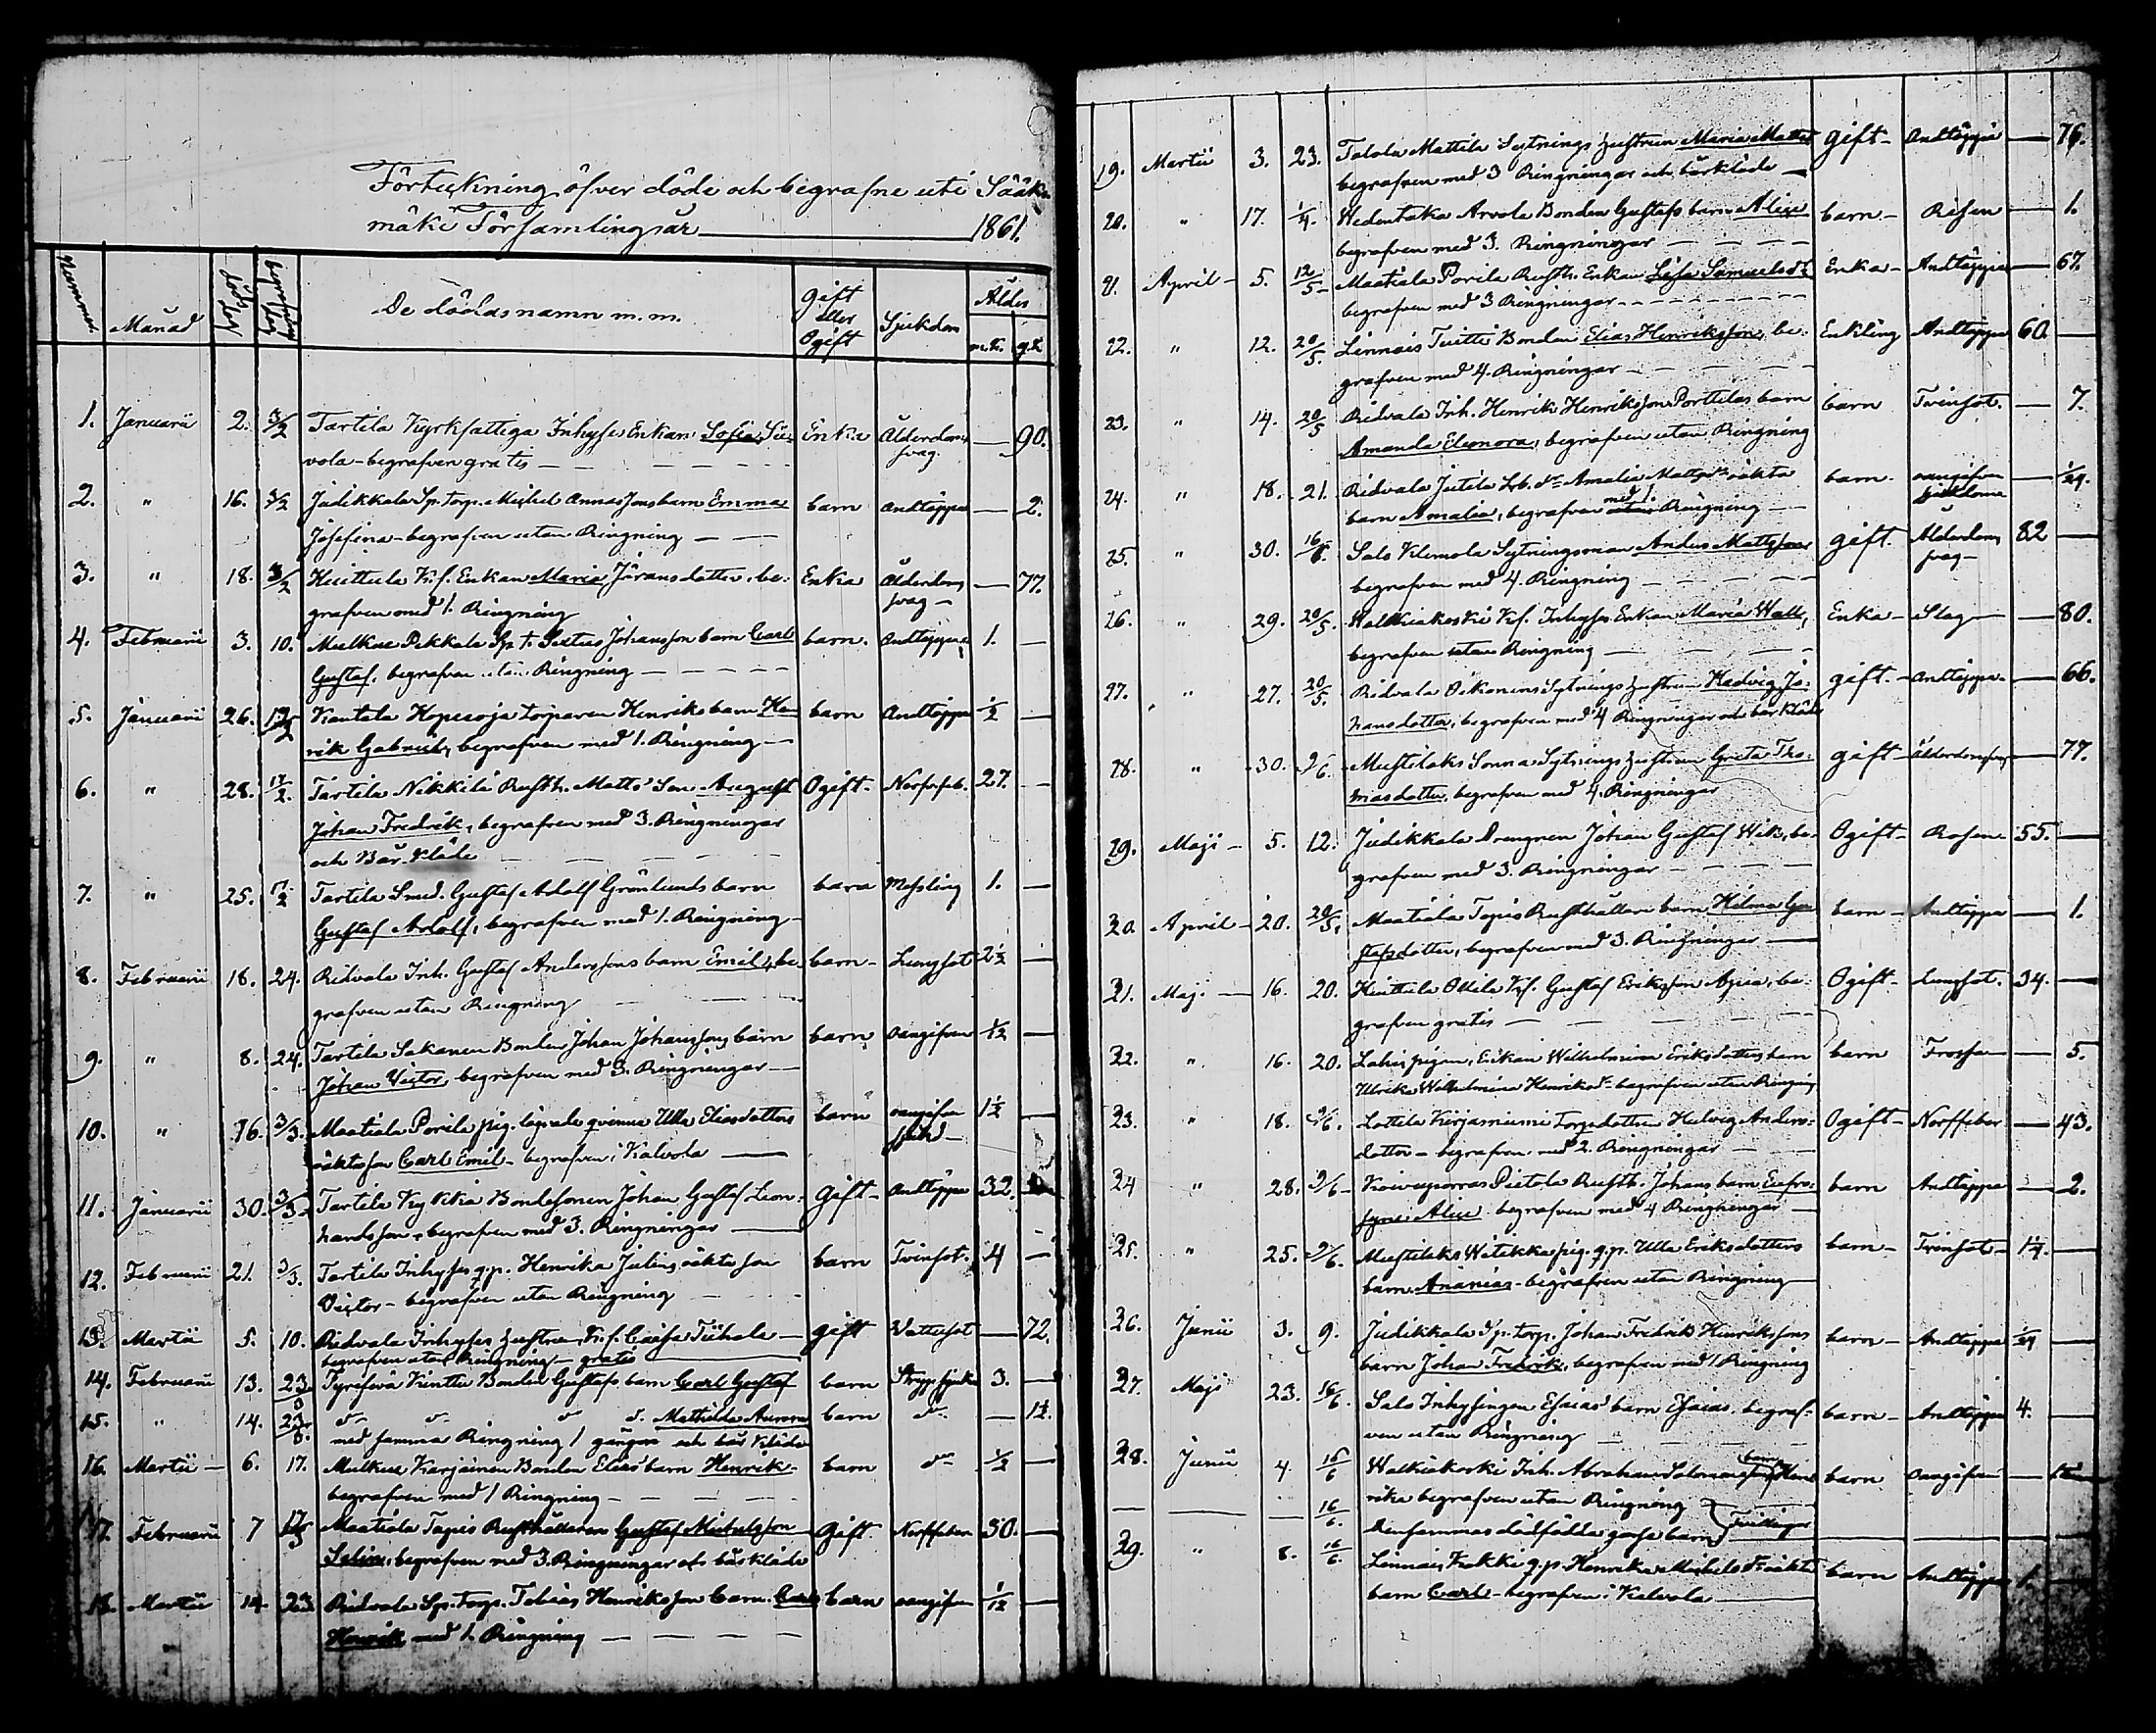 Förteckning öfver döde och begrafne uti Sääks-
mäki Församling år 1861.
Nummer Månad döds dag begrafnings dag De dödas namn m.m. Gift eller Ogift Sjukdom Ålder
m.k. q.k.
1. Januarii 2. 3/2 Tartila Kyrkfattiga Inhyses Enkan Sofia Sä- Enka Ålderdoms 90.
vola - begrafven gratis svag
2. " 16. 3/2 Judikkala Sp. torp. Michel Annas Jons barn Emma barn andtäppa 2.
Josefina - begrafven utan Ringning
3. " 18. 3/2 Huittula Kf. Enkan Maria Jöransdotter, be- Enka Ålderdoms 77.
grafven med 1. Ringning svag
4. Februarii 3. 10. Mälkiä Pekkala Sp. t. Johansson barn Carl barn. andtäppa 1.
Gustaf, begrafven utan Ringning
5. Januarii 26. Kantala Koperoja torparen Henriks barn Hen barn Andtäppa 1/2
rik Gabriel, begrafven med 1. Ringning
6. " 28. 17/2. Tartila Nikkilä Rusth. Matts Son August Ogift Nerffeb. 27.
Johan Fredrik, begrafven med 3. Ringningar
och Bår kläde
7. " 25. 17/2 Tartila Smed. Gustaf Adolf Grönlunds barn barn Messling 1.
Gustaf Adolf, begrafven med 1. Ringning
8. Februarii 18. 24. Ridvala Inh. Gustaf Anderssons barn Emil, be- barn Lungsot 2 1/2
grafven utan Ringning
9. " 8. 24. Tartila Sakanen Bonden Johan Johanssons barn barn oangifven 1/2
Johan Victor, begrafven med 3. Ringningar
10. " 16. 3/3. Maatiala Porila pig. lägrade qvinna Ulla Eliasdotters barn oangifven 1 1/2
oäkta son Carl Emil - begrafven i Kalvola sjukd
11. Januarii 30. 3/3. Tartila Kykkiä Bondesonen Johan Gustaf Leon- Gift Andtäppa 32.
hardsson, begrafven med 3. Ringningar
12. Februarii 21. 3/3. Tartila Inhyses q.p. Henrika Julins oäkta son barn Tvinsot. 4
Victor - begrafven utan Ringning
13. Martii 5. 10. Ridvala Inhyses hustru, Kf. Caisa Tuhala gift Vattusot 72.
begrafven utan Ringning - gratis
14. Februarii 13. 23. Kinttu Bonden Gustafs barn Carl Gustaf barn Strypsjuka 3.
15. " 14. 23. do do do d. Mathilda Aurora barn do 1 1/2.
med samma Ringning 1 gången och bår kläde
16. Martii 6. 17. Mälkiä Karjainen Bonden Elias barn Henrik barn do 1/2
begrafven med 1 Ringning
17. Februarii 7 17/3 Maatiala Tapis Rusthållaren Gustaf Michelsson Gift. Nerffeber 50.
Salin, begrafven med 3. Ringningar och bårkläde
18. Martii 14 23 Ridvala Sp. Torp. Tobias Henriksson barn. Carl barn oangifven 1/12
Henrik med 1. Ringning
19. Martii 3. 23. Talola Mattila Sytnings hustrun Maria Matts gift Andtäppa 76.
begrafven med 3 Ringningar och bårkläde
20. " 17. 1/4. Hedentaka Arvola Bonden Gustafs barn Alice barn Rosen 1.
begrafven med 3. Ringningar
21. April 5. 12/5 Maatiala Porila Rusth. Enkan Lisa Samuelsdr Enka Andtäppa 67.
begrafven med 3 Ringningar
22. " 12. 20/5. Linnais Tuitti Bonden Elias Henriksson, be- Enkling Andtäppa 60.
grafven med 4. Ringningar
23. " 14. 20/5 Ridvala Inh. Henrik Henriksson Porttilas barn barn Tvinsot. 7.
Amanda Eleonora, begrafven utan Ringning
24. " 18. 21. Ridvala Jutila Amalia Mattsdr oäkta barn. oangifven 1/24.
barn Amalia, begrafven med 1. Ringning sjukdom
25. " 30. 16/6. Salo Klemola Sytningsman Anders Mattsson gift. Ålderdoms 82
begrafven med 4. Ringning svag
26. " 29. 20/5. Walkiakoski Kf. Inhyses Enkan Maria Wall, Enka Slag 80.
begrafven utan Ringning
27. " 27. 20/5. Ridvala Oikonens Sytnings hustrun Hedvig Jo- gift. andtäppa 66.
hansdotter, begrafven med 4 Ringningar och bår kläde
28. " 30. 2/6. Mustilaks Sonna Sytnings hustrun Greta Tho- gift Ålderdomssvag 77.
masdotter, begrafven med 4. Ringningar
29. Maji 5. 12. Judikkala Drengen Johan Gustaf Wik, be- Ogift Rosen 55.
grafven med 3. Ringningar
30. April 20. 20/5. Maatiala Tapis Rusthållare barn Hilma Gu barn Andtäppa 1.
stafsdotter, begrafven med 3. Ringningar
31. Maji 16. 20. Huittula Ollila Kf. Gustaf Eriksson be- Ogift Lungsot. 34.
grafven gratis
32. " 16. 20. Lahis pigan, Enkan Wilhelmina Eriksdotters barn barn Frossan 5.
Ulrika Wilhelmina Henriksdr begrafven utan Ringning
33. " 18. 2/6. Lottila Kirjaniemi Torpdottern Hedvig Anders- Ogift Nerffeber 43.
dotter - begrafven med 2. Ringningar
34 " 28. 2/6 Koivuporras Pietola Rusth. Johans barn Eufro- barn Andtäppa 2.
syne Alice begrafven med 4 Ringningar
35. " 25. 2/6. Mustilaks Witikka pig. q.p. Ulla Eriksdotters barn Tvinsot 1 1/4.
barn Ananias - begrafven utan Ringning
36. Junii 3. 9. Judikkala Sp. torp. Johan Fredrik Henrikssons barn Andtäppa 1/24
barn Johan Fredrik, begrafven med 1 Ringning
37. Maji 23. 16/6. Salo Inhysingen Esaias' barn Esaias, begraf- barn Andtäppa 4.
ven utan Ringning
38. Junii 4. 16/6 Walkiakoski Inh. Abraham Salomonssons barn Hen barn oangifven
rika begrafven utan Ringning
16/6. Densammas dödfödda gosse barn tvillingar
39. " 8. 16/6. Linnais Kokki q.p. Henrika Michelsdr oäkta barn Andtäppa 1.
barn Carl - begrafven i Kalvola